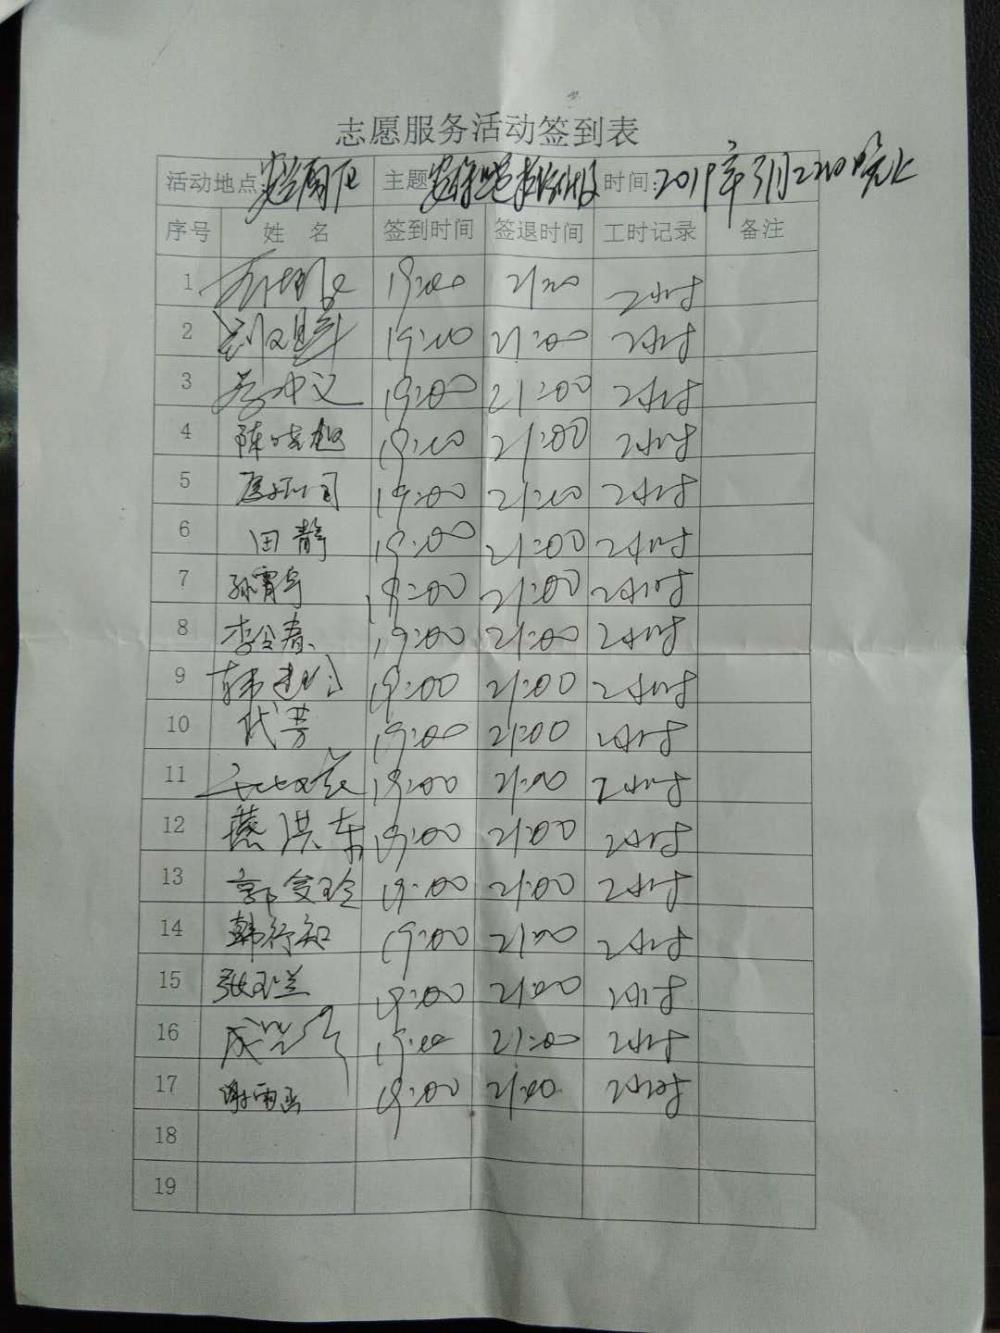 志愿服务活动签到表
活动地点: 主题 时间:2019年3月22日晚上
序号 姓 名 签到时间 签退时间 工时记录 备注
1 19:00 21:00 2小时
2 19:00 21:00 2小时
3 19:00 21:00 2小时
4 陈晓旭 19:00 21:00 2小时
5 19:00 21:00 2小时
6 田静 19:00 21:00 2小时
7 孙霄宇 19:00 21:00 2小时
8 李令春 19:00 21:00 2小时
9 韩建 19:00 21:00 2小时
10 代芳 19:00 21:00 2小时
11 19:00 21:00 2小时
12 燕洪东 19:00 21:00 2小时
13 郭爱玲 19:00 21:00 2小时
14 韩行知 19:00 21:00 2小时
15 张玉兰 19:00 21:00 2小时
16 成 19:00 21:00 2小时
17 谢雨函 19:00 21:00 2小时
18
19